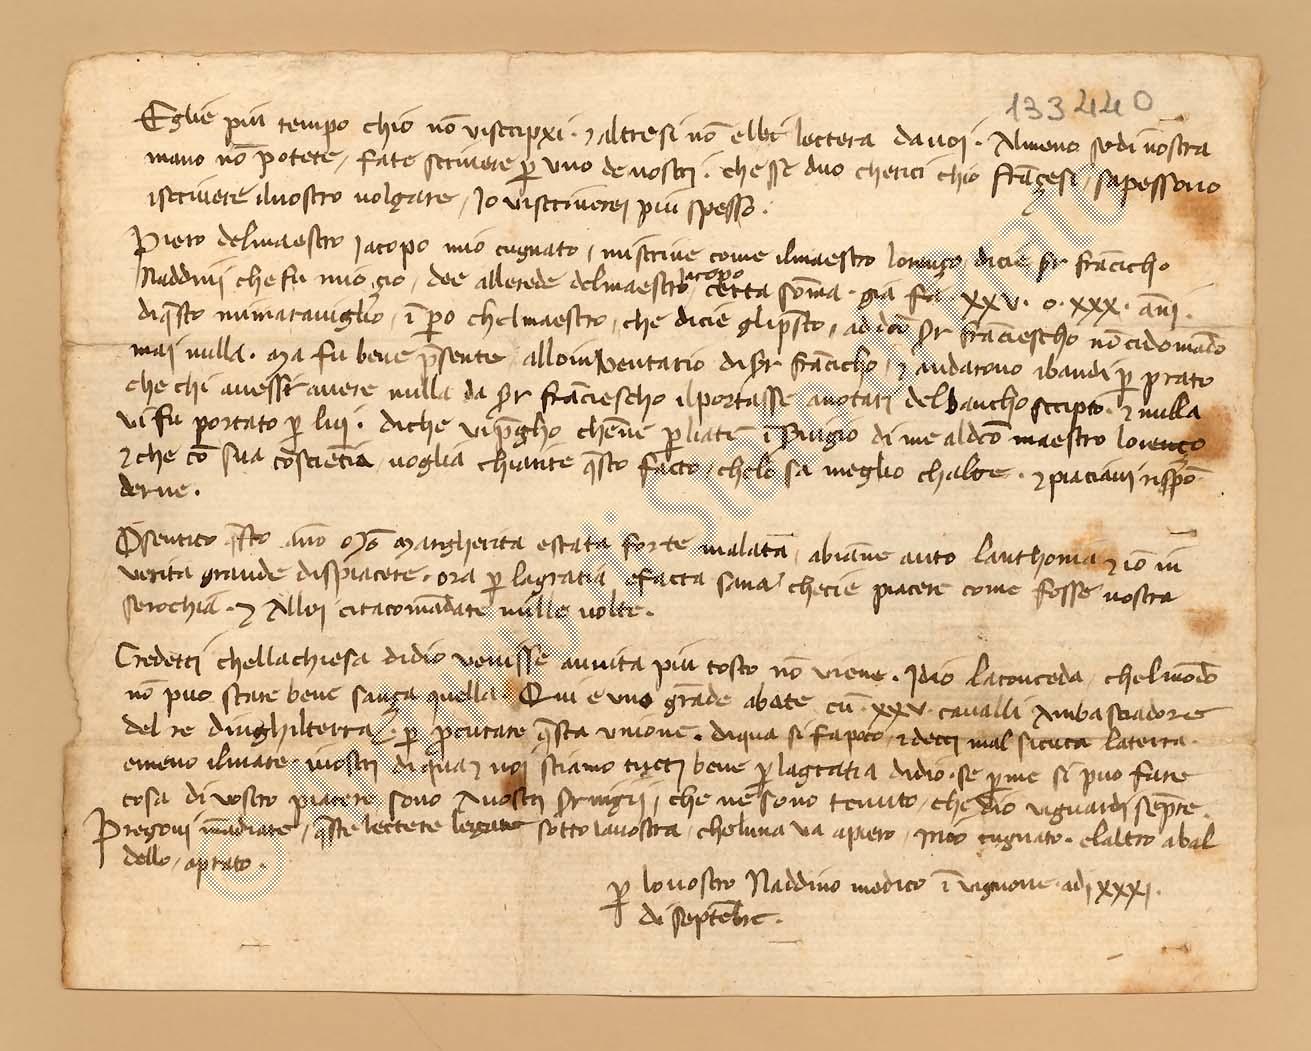 133440
Eglie piu tempo chio nō viscripxi · ⁊ altresi nō ebbi lectera da voi · Almeno se di vostra
mano nō potete / fate scrivere ꝑ uno de vostri · che sse duo cherici chio franc̄esi / sapessono
iscrivere il nostro volgare / Io viscriverei piu spesso ·
Piero del maestro Jacopo mio cugnato / mi scrive come il maestro Lorenzo / dicie s̄r franc̄icho
Naddini che fu mio çio / dee allerede del maestro Jacopo certa som̄a · gia fa · xxv · o · xxx · anni ·
di q̄sto mi maraviglio / ī ꝑo chel maestro / che dicie gli p̄sto / ad dc̄o s̄r franc̄iescho nō ci domādo
mai nulla · Ma fu bene p̄sente / allo inventario di s̄r franc̄icho / ⁊ andarono i bandi ꝑ prato
che chi avesse avere nulla da s̄r franc̄iescho il portasse a notari del bancho scripto · ⁊ nulla
vi fu portato ꝑ lui · di che vi p̄gho che nē ꝑliate ī s̄vigio di me al dc̄o maestro lorenço
⁊ che cō sua cosciēcia / voglia chiarire q̄sto facto / che lo sa meglio chaltre · ⁊ piaciavi rispō
derne ·
O sentito q̄sto āno Mō Margherita e stata forte malata / abiāne auto lanthonia ⁊ io in
verita grande dispiacere · ora ꝑ la gratia e facta sana / che cie piacere come fosse nostra
serochia · ⁊ Allei ci racomādate mille volte ·
Credecti chella chiesa di dio venisse a unita piu tosto nō viene · Idio la conceda / chel mōdo
nō puo stare bene sança quella · Qui e uno grāde abate cū · xxv · cavalli Ambasciadore
del re dinghilterra / · ꝑ ꝓcurare q̄sta unione · di qua si fa poco / ⁊ decci mal sicura la terra ·
e meno il mare · i vostri di qua ⁊ noi stiamo tucti bene ꝑ la gratia didio · se ꝑ me si puo fare
cosa di vostro piacere sono A vostri s̄vigi / che ne sono tenuto / che dio vi guardi sēpre ·
Pregovi mādiate / q̄ste lectere legate sotto la vostra / che luna va a piero / mio cugnato · e laltro a bal
dello / a prato ·
ꝑ lo vostro Naddino medico ī vignone · adi xxxi ·
di septēbre ·